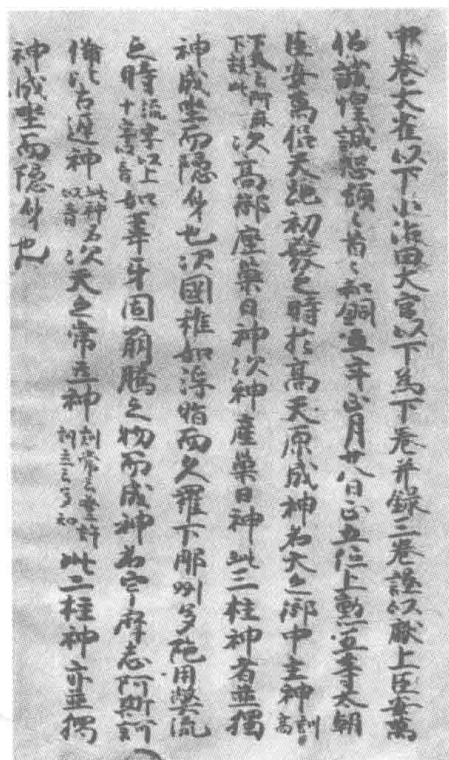 中巻大雀以下小治田大宮以下為下巻并録三巻謹以献上臣安萬
侶誠惶誠恐頓〻首〻和銅五年正月廿八日正五位上勲五等太朝
臣安萬侶天地初發之時於高天原成神名天之御中主神訓高
下天云阿麻下效此次高御産巣日神次神産巣日神此三柱神者並獨
神成坐而隠身也次國稚如浮脂而久羅下那州多陁用弊流
之時流字以上十字以音如葦牙因萌騰之物而成神名宇摩志阿斯訶
備比古遅神此神名以音次天之常立神訓常云登許訓立云多知此二柱神亦並獨
神成坐而隠身也